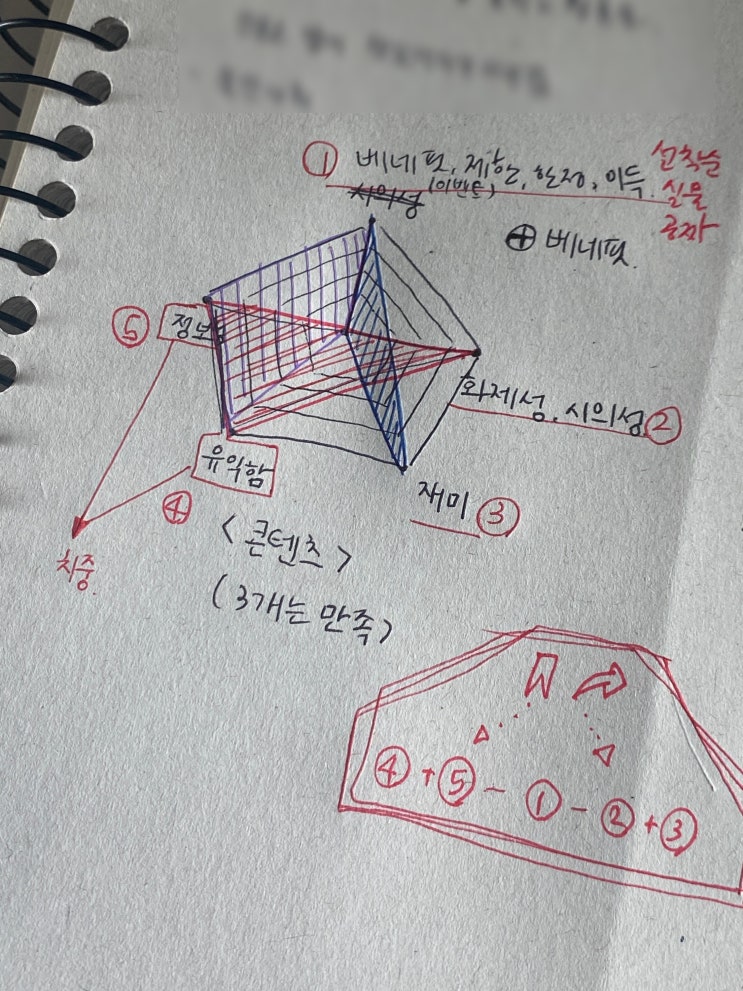 ① 베네핏, 제한, 한정, 이득. 선착순
시의성 (이벤트) 실물
공짜
⊕ 베네핏.
⑤ 정보
화제성. 시의성 ②
유익함
④
재미 ③
치중.
<콘텐츠>
(3개는 만족)
④ + ⑤ - ① - ② + ③